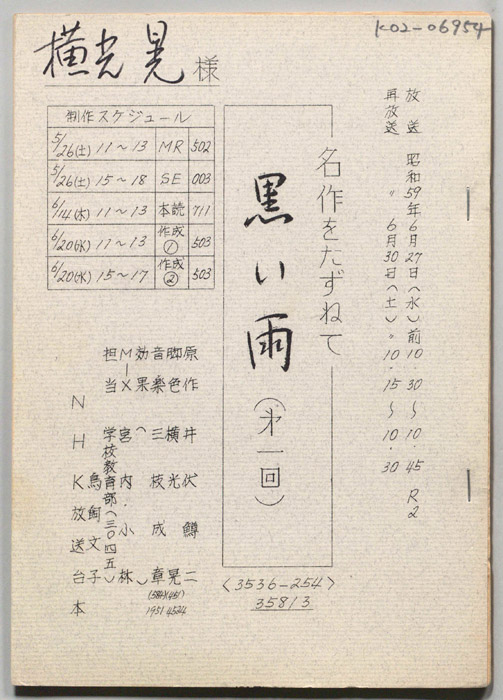 K02-06954
横光晃 様
制作スケジュール
5/26(土) 11～13 MR 502
5/26(土) 15～18 SE 003
6/14(木) 11～13 本読 711
6/20(水) 11～13 作成① 503
6/20(水) 15～17 作成② 503
放送 昭和59年6月27日(水)前10.30～10.45 R2
再放送 〃 6月30日(土)〃10.15～10.30
名作をたずねて
黒い雨
(才一回)
<3536-254>
35813
原作 井伏鱒二
脚色 横光晃
(451)
4524
音楽 三枝成章
(584)
1951
効果 (
M－X 宮内・小林)
担当 学校教育部(三〇四五)
鳥飼文子
NHK放送台本